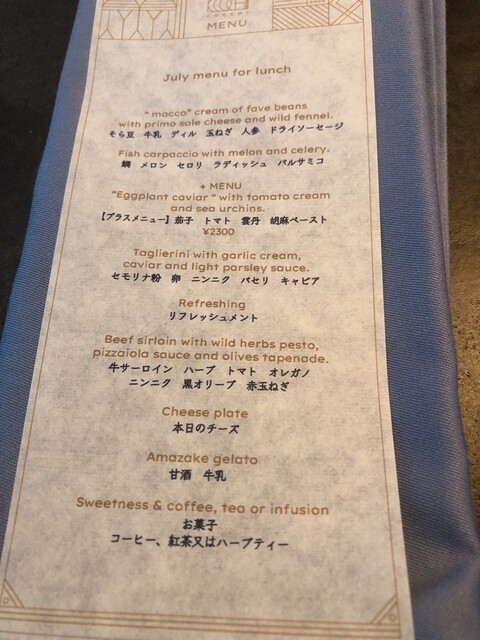 MENU
July menu for lunch
" macco" cream of fave beans
with primo sale cheese and wild fennel.
そら豆 牛乳 ディル 玉ねぎ 人参 ドライソーセージ
Fish carpaccio with melon and celery.
鯛 メロン セロリ ラディッシュ バルサミコ
+ MENU
"Eggplant caviar " with tomato cream
and sea urchins.
【プラスメニュー】茄子 トマト 雲丹 胡麻ペースト
¥2300
Taglierini with garlic cream,
caviar and light parsley sauce.
セモリナ粉 卵 ニンニク パセリ キャビア
Refreshing
リフレッシュメント
Beef sirloin with wild herbs pesto,
pizzaiola sauce and olives tapenade.
牛サーロイン ハーブ トマト オレガノ
ニンニク 黒オリーブ 赤玉ねぎ
Cheese plate
本日のチーズ
Amazake gelato
甘酒 牛乳
Sweetness & coffee, tea or infusion
お菓子
コーヒー、紅茶又はハーブティー